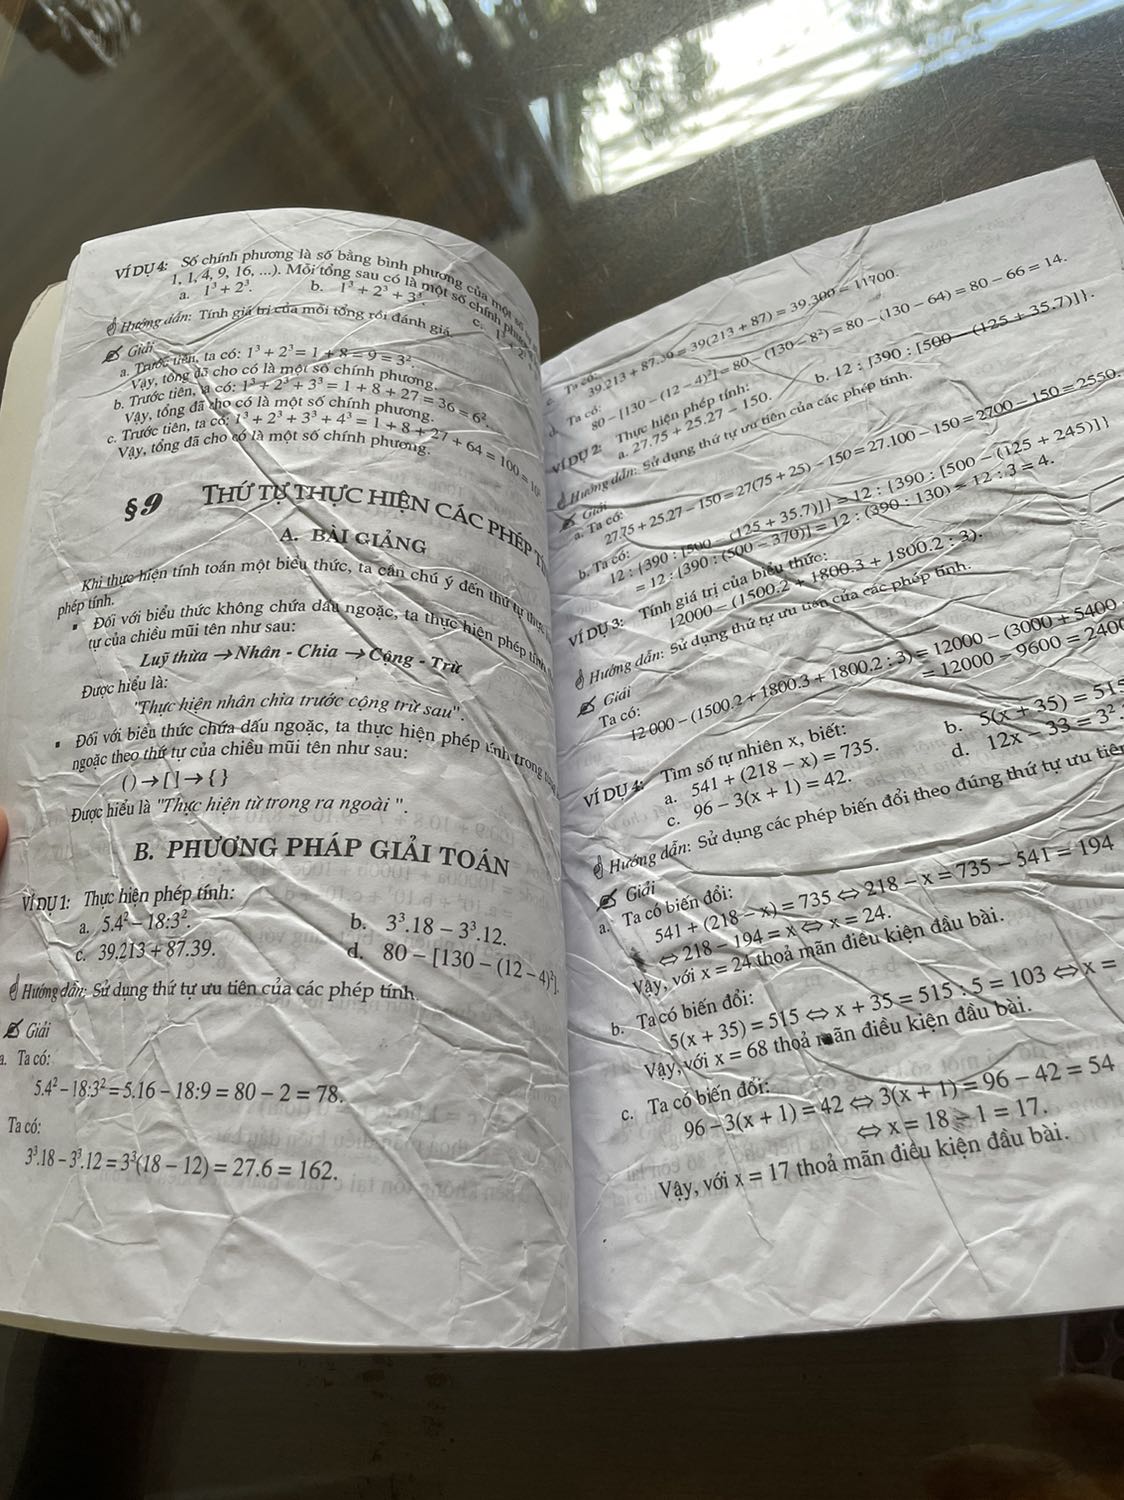 VÍ DỤ 4: Số chính phương là số bằng bình phương của một số
1, 1, 4, 9, 16, ...). Mỗi tổng sau có là một số chính phương
a. 1³ + 2³. b. 1³ + 2³ + 3³ c. 1³ + 2³
Hướng dẫn: Tính giá trị của mỗi tổng rồi đánh giá.
Giải
a. Trước tiên, ta có: 1³ + 2³ = 1 + 8 = 9 = 3².
Vậy, tổng đã cho có là một số chính phương.
b. Trước tiên, ta có: 1³ + 2³ + 3³ = 1 + 8 + 27 = 36 = 6².
Vậy, tổng đã cho có là một số chính phương.
c. Trước tiên, ta có: 1³ + 2³ + 3³ + 4³ = 1 + 8 + 27 + 64 = 100 = 10²
Vậy, tổng đã cho có là một số chính phương.
§9 THỨ TỰ THỰC HIỆN CÁC PHÉP
A. BÀI GIẢNG
Khi thực hiện tính toán một biểu thức, ta cần chú ý đến thứ tự thực
phép tính.
▪ Đối với biểu thức không chứa dấu ngoặc, ta thực hiện phép tính
tự của chiều mũi tên như sau:
Luỹ thừa → Nhân - Chia → Cộng - Trừ
Được hiểu là:
"Thực hiện nhân chia trước cộng trừ sau".
▪ Đối với biểu thức chứa dấu ngoặc, ta thực hiện phép tính trong
ngoặc theo thứ tự của chiều mũi tên như sau:
( ) → [ ] → { }
Được hiểu là "Thực hiện từ trong ra ngoài ".
B. PHƯƠNG PHÁP GIẢI TOÁN
VÍ DỤ 1: Thực hiện phép tính:
a. 5.4² – 18:3². b. 3³.18 – 3³.12.
c. 39.213 + 87.39. d. 80 – [130 – (12 – 4)²].
Hướng dẫn: Sử dụng thứ tự ưu tiên của các phép tính.
Giải
a. Ta có:
5.4² – 18:3² = 5.16 – 18:9 = 80 – 2 = 78.
Ta có:
3³.18 – 3³.12 = 3³(18 – 12) = 27.6 = 162.
c. Ta có:
39.213 + 87.39 = 39(213 + 87) = 39.300 = 11700.
d. Ta có:
80 – [130 – (12 – 4)²] = 80 – (130 – 8²) = 80 – (130 – 64) = 80 – 66 = 14.
VÍ DỤ 2: Thực hiện phép tính:
a. 27.75 + 25.27 – 150. b. 12 : {390 : [500 – (125 + 35.7)]}.
Hướng dẫn: Sử dụng thứ tự ưu tiên của các phép tính.
Giải
a. Ta có:
27.75 + 25.27 – 150 = 27(75 + 25) – 150 = 27.100 – 150 = 2700 – 150 = 2550.
b. Ta có:
12 : {390 : [500 – (125 + 35.7)]} = 12 : {390 : [500 – (125 + 245)]}
= 12 : [390 : (500 – 370)] = 12 : (390 : 130) = 12 : 3 = 4.
VÍ DỤ 3: Tính giá trị của biểu thức:
12000 – (1500.2 + 1800.3 + 1800.2 : 3).
Hướng dẫn: Sử dụng thứ tự ưu tiên của các phép tính.
Giải
Ta có:
12 000 – (1500.2 + 1800.3 + 1800.2 : 3) = 12000 – (3000 + 5400
= 12000 – 9600 = 2400
VÍ DỤ 4: Tìm số tự nhiên x, biết:
a. 541 + (218 – x) = 735. b. 5(x + 35) = 515
c. 96 – 3(x + 1) = 42. d. 12x – 33 = 3².
Hướng dẫn: Sử dụng các phép biến đổi theo đúng thứ tự ưu tiên
Giải
a. Ta có biến đổi:
541 + (218 – x) = 735 ⇔ 218 – x = 735 – 541 = 194
⇔ 218 – 194 = x ⇔ x = 24.
Vậy, với x = 24 thoả mãn điều kiện đầu bài.
b. Ta có biến đổi:
5(x + 35) = 515 ⇔ x + 35 = 515 : 5 = 103 ⇔ x =
Vậy, với x = 68 thoả mãn điều kiện đầu bài.
c. Ta có biến đổi:
96 – 3(x + 1) = 42 ⇔ 3(x + 1) = 96 – 42 = 54
⇔ x = 18 – 1 = 17.
Vậy, với x = 17 thoả mãn điều kiện đầu bài.